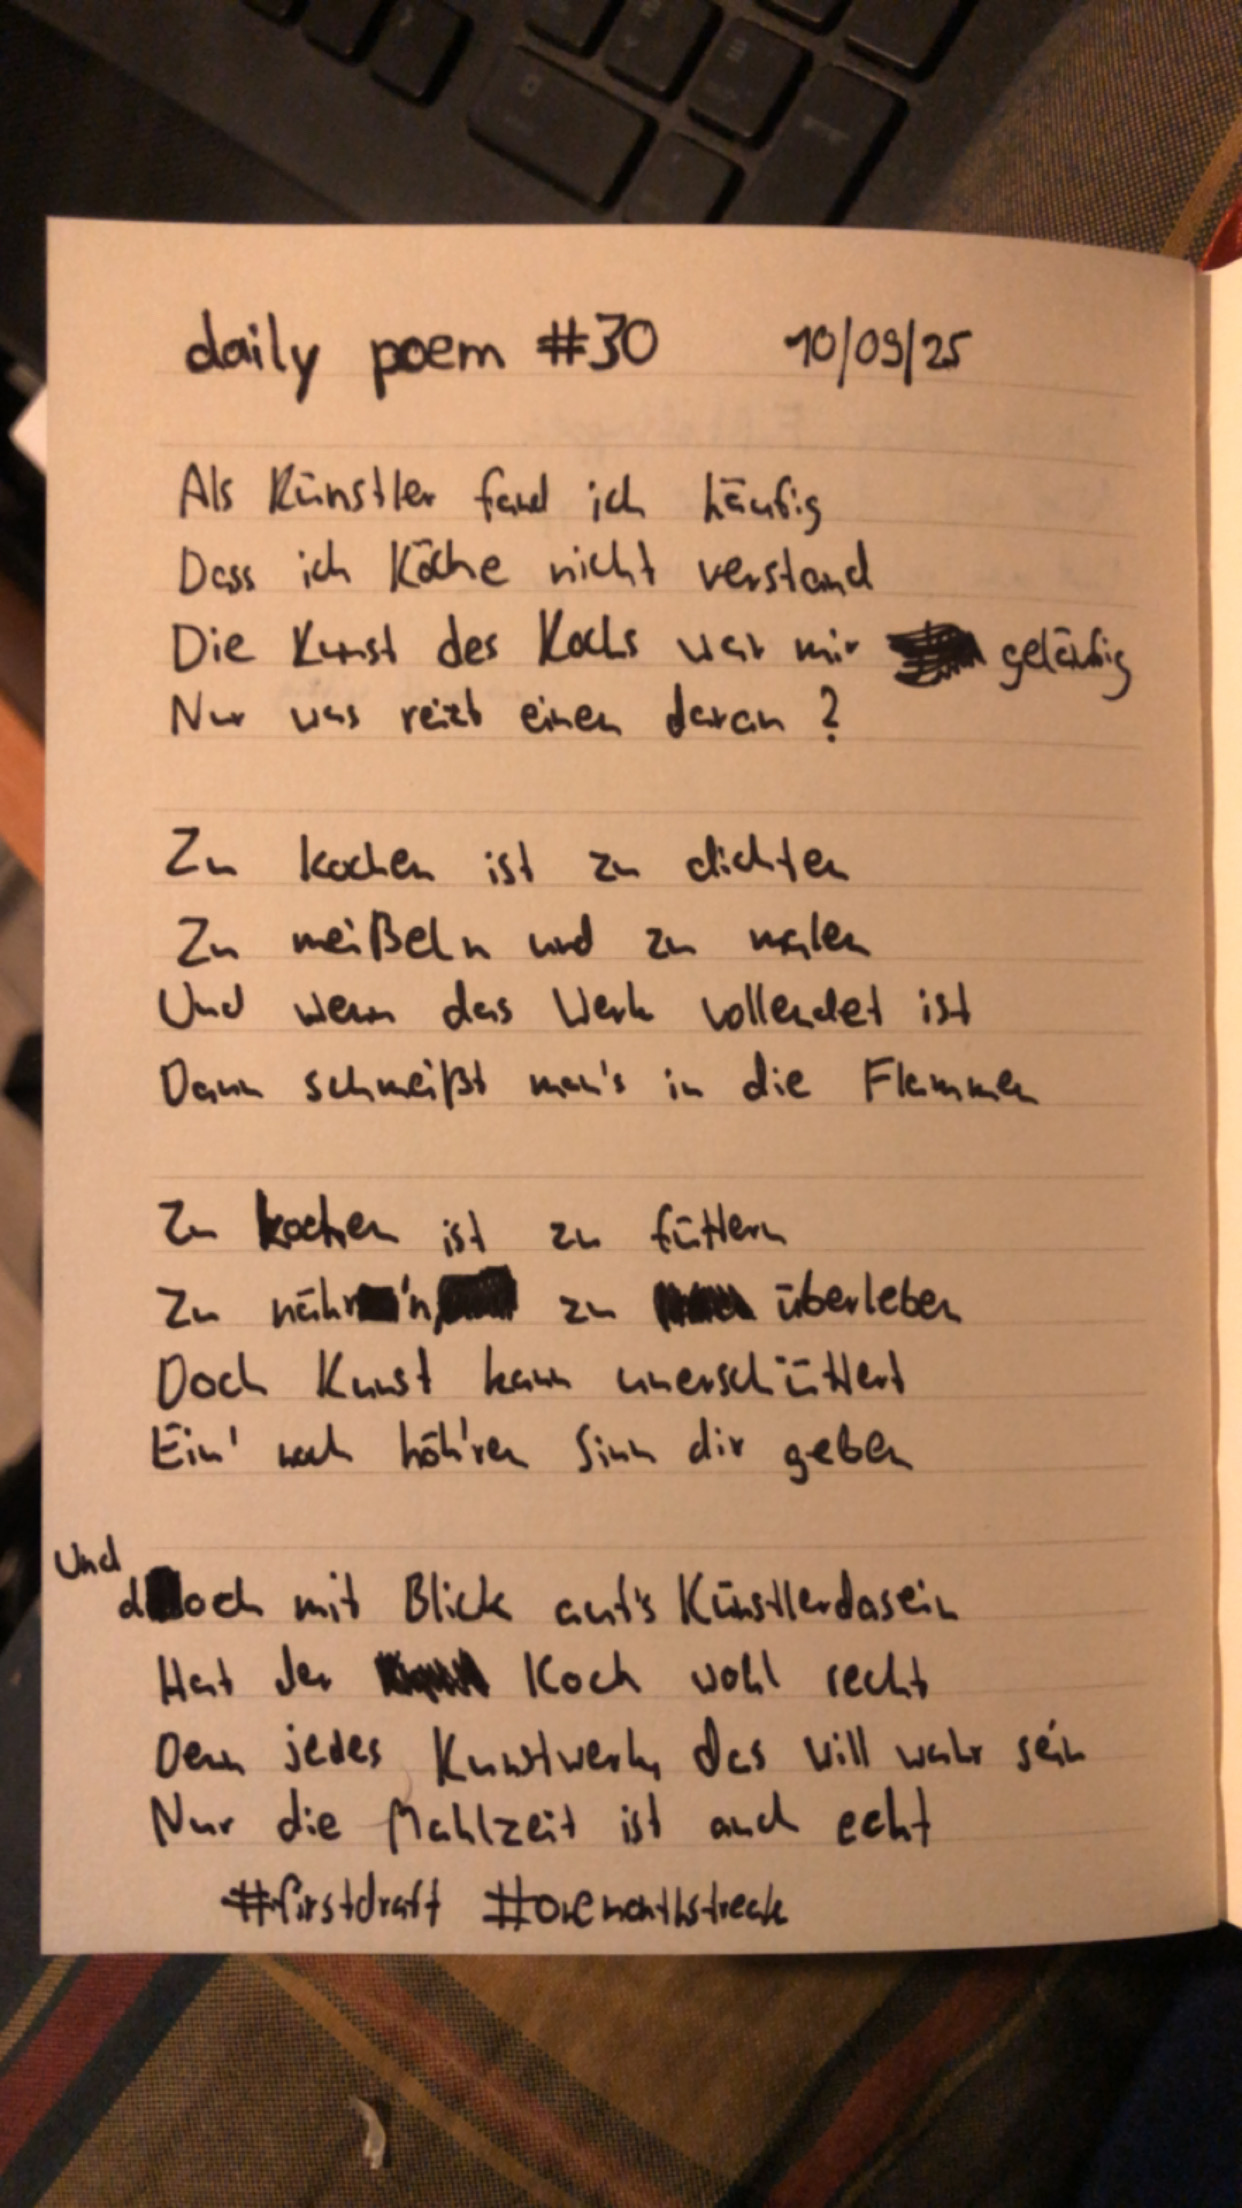 daily poem #30 10/09/25
Als Künstler fand ich häufig
Dass ich Köche nicht verstand
Die Kunst des Kochs war mir geläufig
Nur was reizt einen daran?
Zu kochen ist zu dichten
Zu meißeln und zu malen
Und wenn das Werk vollendet ist
Dann schmeißt man's in die Flammen
Zu kochen ist zu füttern
Zu nähr'n, zu überleben
Doch Kunst kann unerschüttert
Ein' noch höh'ren Sinn dir geben
Und
doch mit Blick auf's Künstlerdasein
Hat der Koch wohl recht
Denn jedes Kunstwerk, das will wahr sein
Nur die Mahlzeit ist auch echt
#firstdraft #onemonthstreak